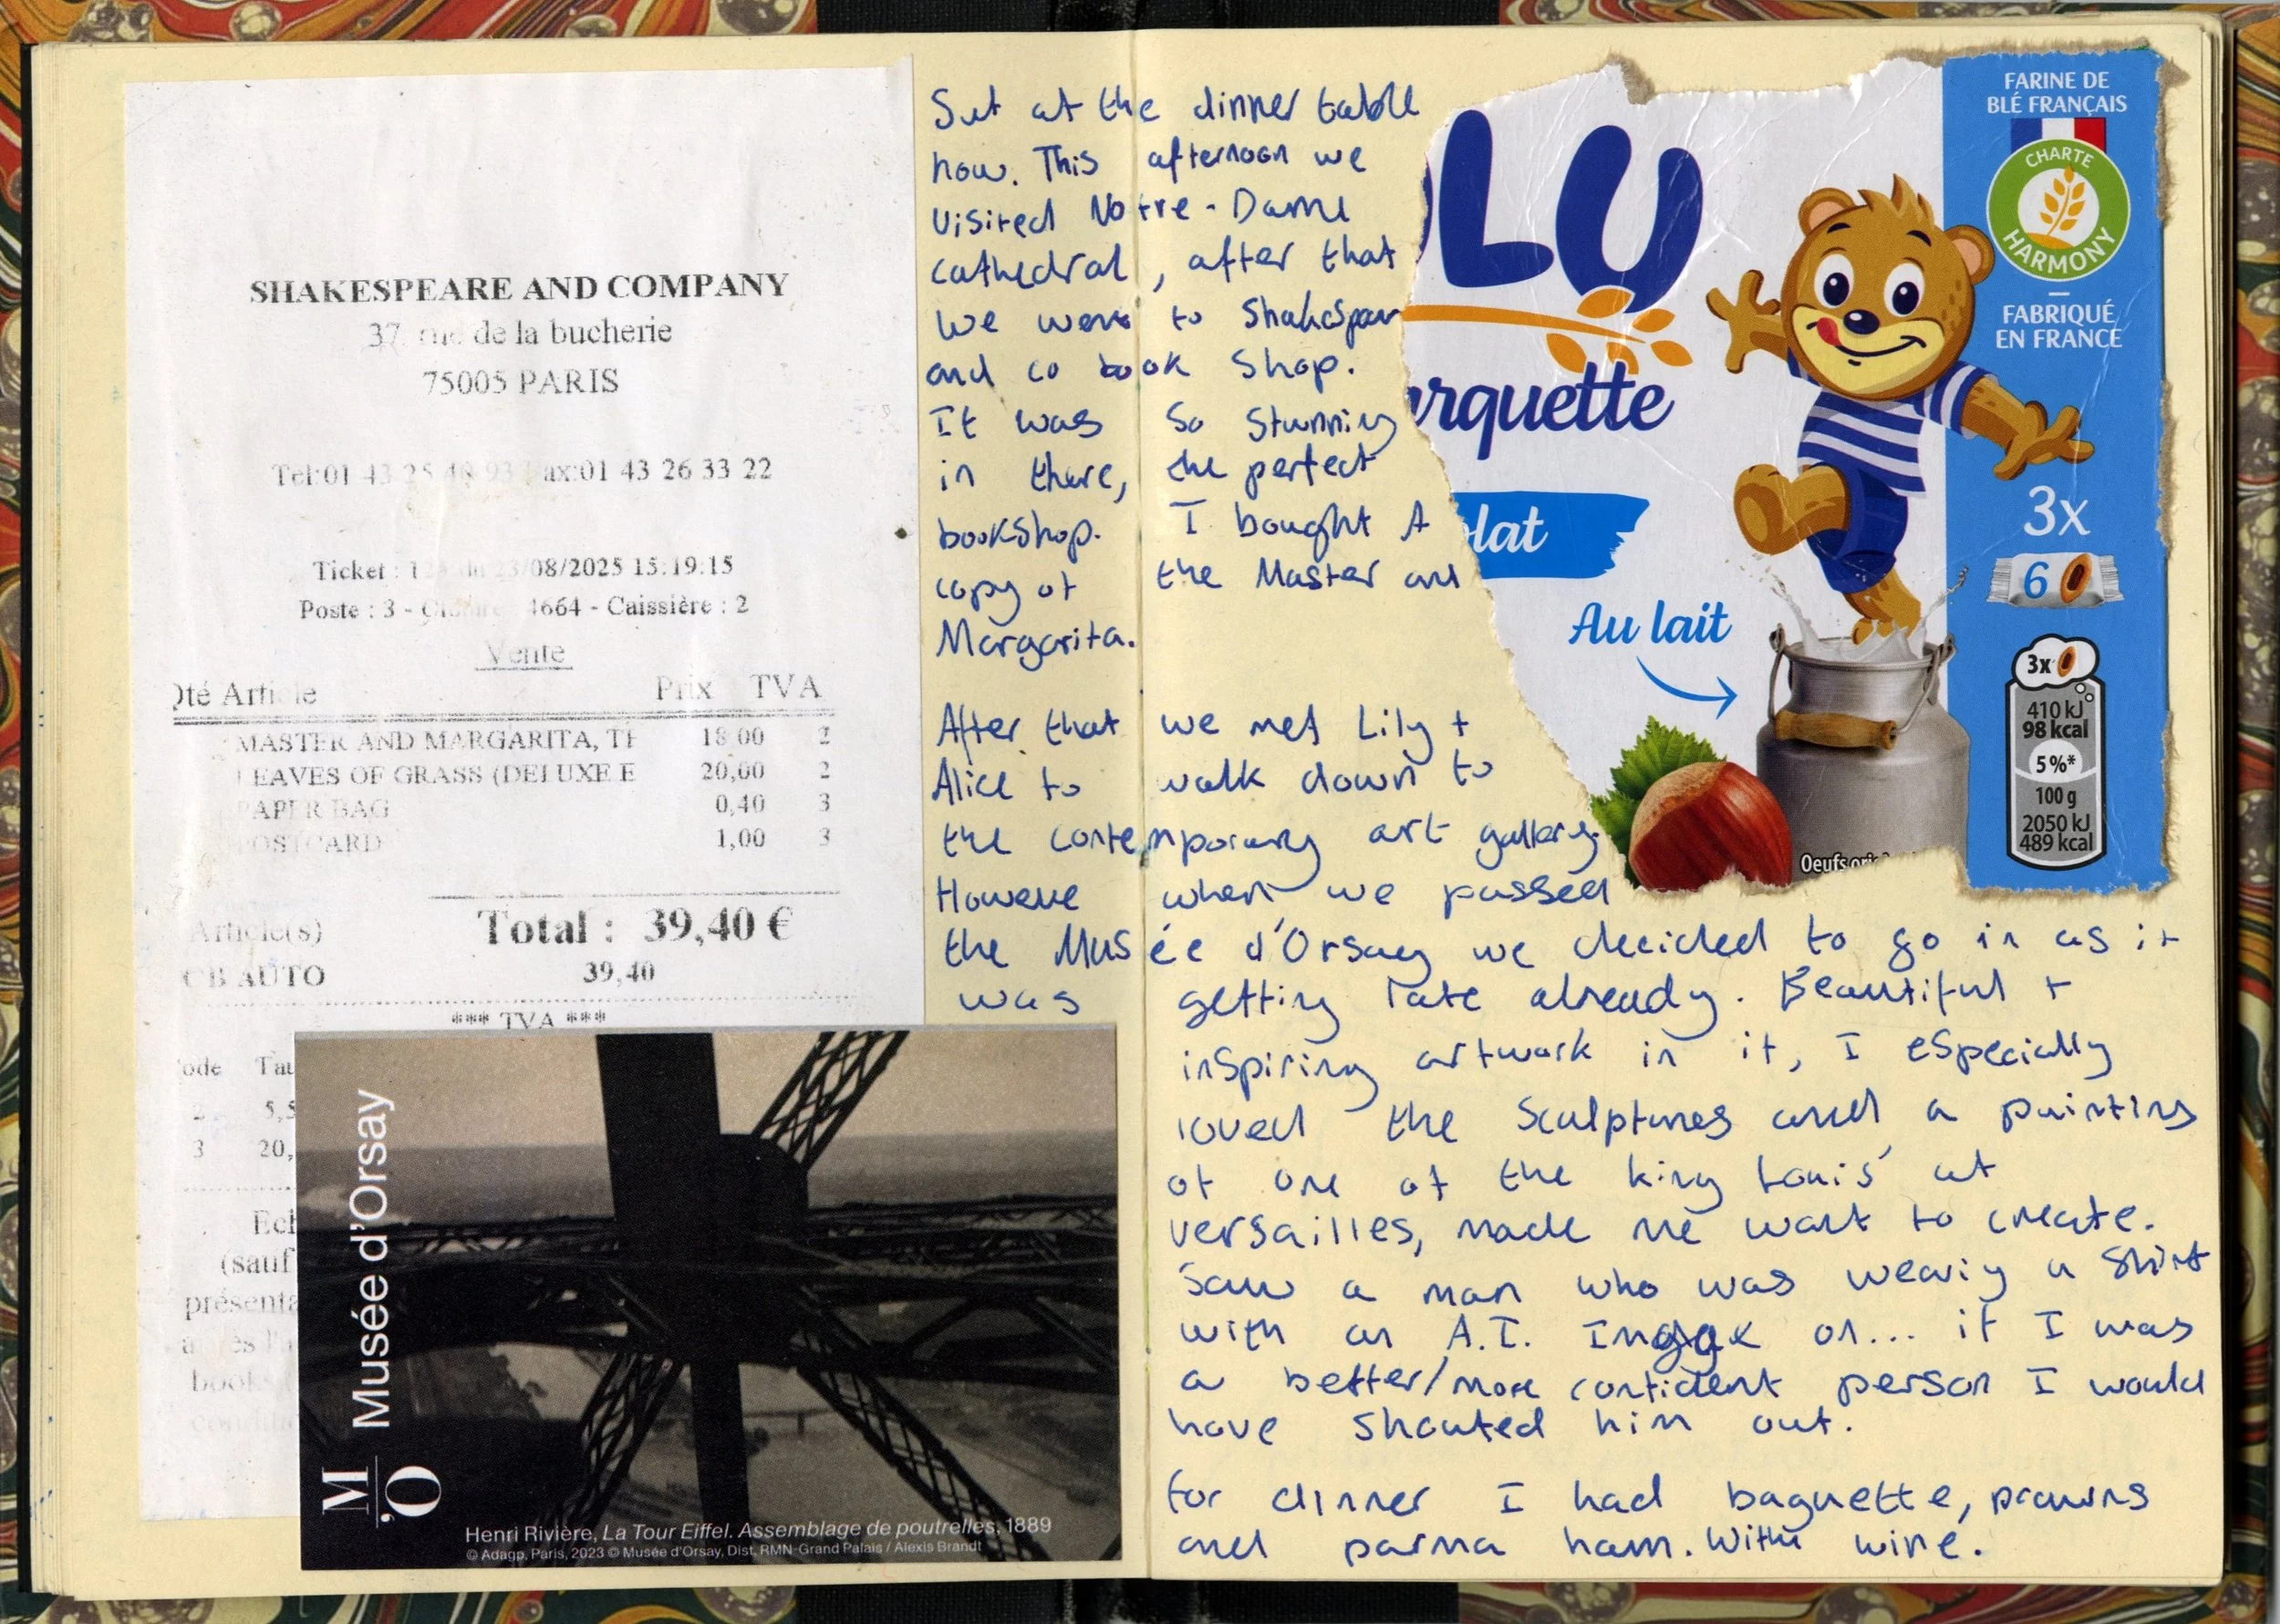 SHAKESPEARE AND COMPANY
37 rue de la bucherie
75005 PARIS
Tel:01 43 25 40 93 ax:01 43 26 33 22
Ticket : 12 du 23/08/2025 15:19:15
Poste : 3 - 4664 - Caissière : 2
Vente
Qté Article Prix TVA
MASTER AND MARGARITA, TH 18,00 2
LEAVES OF GRASS (DELUXE E 20,00 2
PAPER BAG 0,40 3
POSTCARD 1,00 3
Total : 39,40 €
Article(s)
CB AUTO 39,40
*** TVA ***
ode Tau
2 5,5
3 20,
Ech
(sauf
présenta
après l'a
books
conditio
Musée d'Orsay
M'O
Henri Rivière, La Tour Eiffel. Assemblage de poutrelles, 1889
© Adagp, Paris, 2023 © Musée d'Orsay, Dist. RMN-Grand Palais / Alexis Brandt
Sat at the dinner table
now. This afternoon we
visited Notre-Dame
cathedral, after that
we went to Shakespear
and co book shop.
It was so stunning
in there, the perfect
bookshop. I bought A
copy of the Master and
Margarita.
After that we met Lily +
Alice to walk down to
the contemporary art gallery.
Howeve when we passed
the Musée d'Orsay we decided to go in as it
was getting late already. Beautiful +
inspiring artwork in it, I especially
loved the sculptures and a painting
of one of the king Louis' at
versailles, made me want to create.
Saw a man who was wearing a shirt
with an A.I. Image on... if I was
a better/more confident person I would
have shouted him out.
for dinner I had baguette, prawns
and parma ham. With wine.
LU
arquette
olat
Au lait
Oeufs ori
FARINE DE
BLÉ FRANÇAIS
CHARTE
HARMONY
FABRIQUÉ
EN FRANCE
3x
6
3x
410 kJ
98 kcal
5%*
100 g
2050 kJ
489 kcal